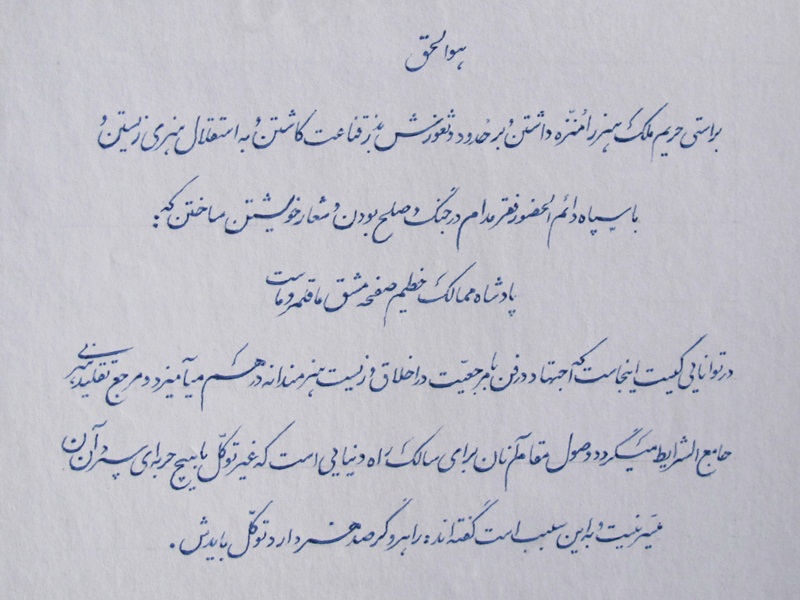 هوالحق
براستی حریم ملک هنر را منزّه داشتن و بر حدود و ثغورش بذر قناعت کاشتن و به استقلال هنری زیستن و
با سپاه دائم الحضور فقر مدام در جنگ و صلح بودن و شعار خویشتن ساختن که:
پادشاه ممالک خطیم صفحه مشق ما قلمرو ماست
در توانایی کیست اینجاست که اجتهاد در فن با مرجعیّت در اخلاق و زیست هنرمندانه در هم میآمیزد و مرجع تقلید هنر
جامع الشرایط میگردد وصول مقام آنان برای سالک راه دنیایی است که غیر توکّل با هیچ حربه‌ای سپردن آن
میّسر نیست و به این سبب است گفته‌اند: راهرو گر صد هنر دارد توکّل بایدش.